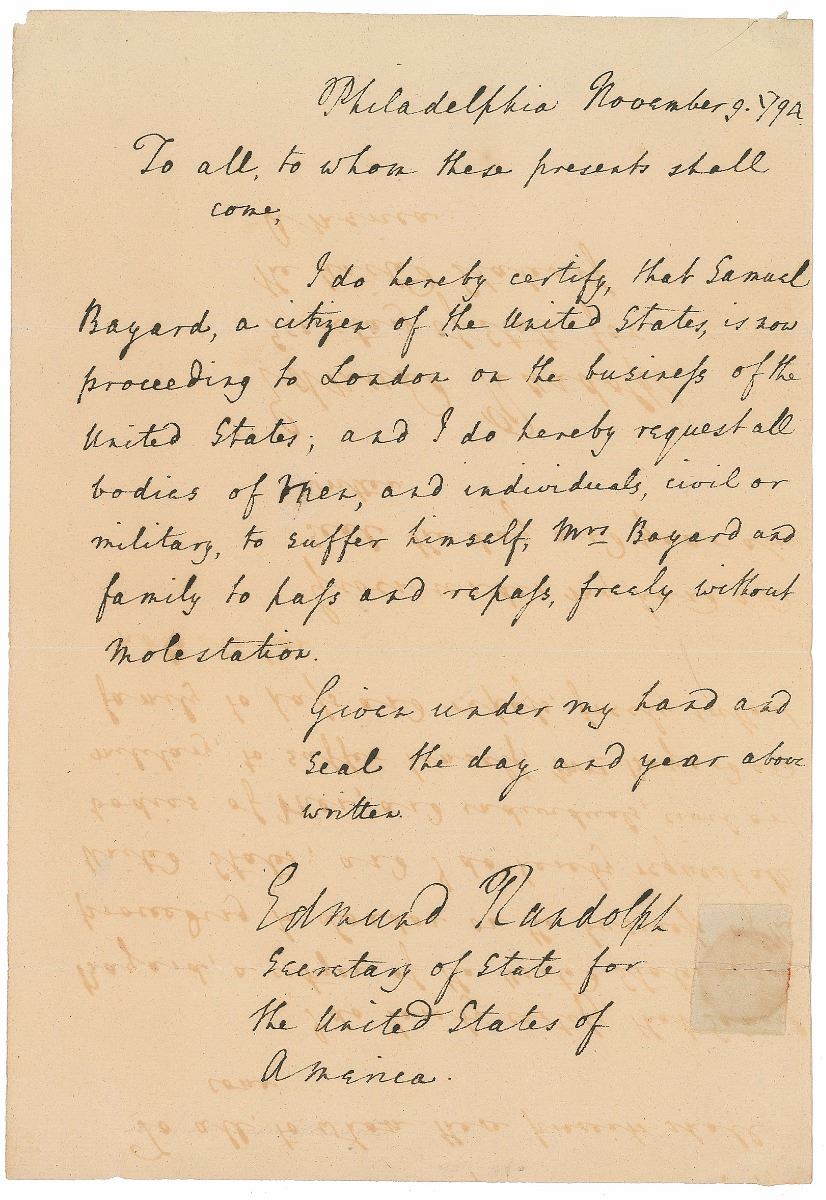 Philadelphia November 9. 1794
To all, to whom these presents shall
come,
I do hereby certify, that Samuel
Bayard, a citizen of the United States, is now
proceeding to London on the busineſs of the
United States; and I do hereby request all
bodies of Men, and individuals, civil or
military, to suffer himself, Mrs Bayard and
family to paſs and repaſs, freely without
molestation.
Given under my hand and
seal the day and year above
written.
Edmund Randolph
Secretary of State for
the United States of
America.